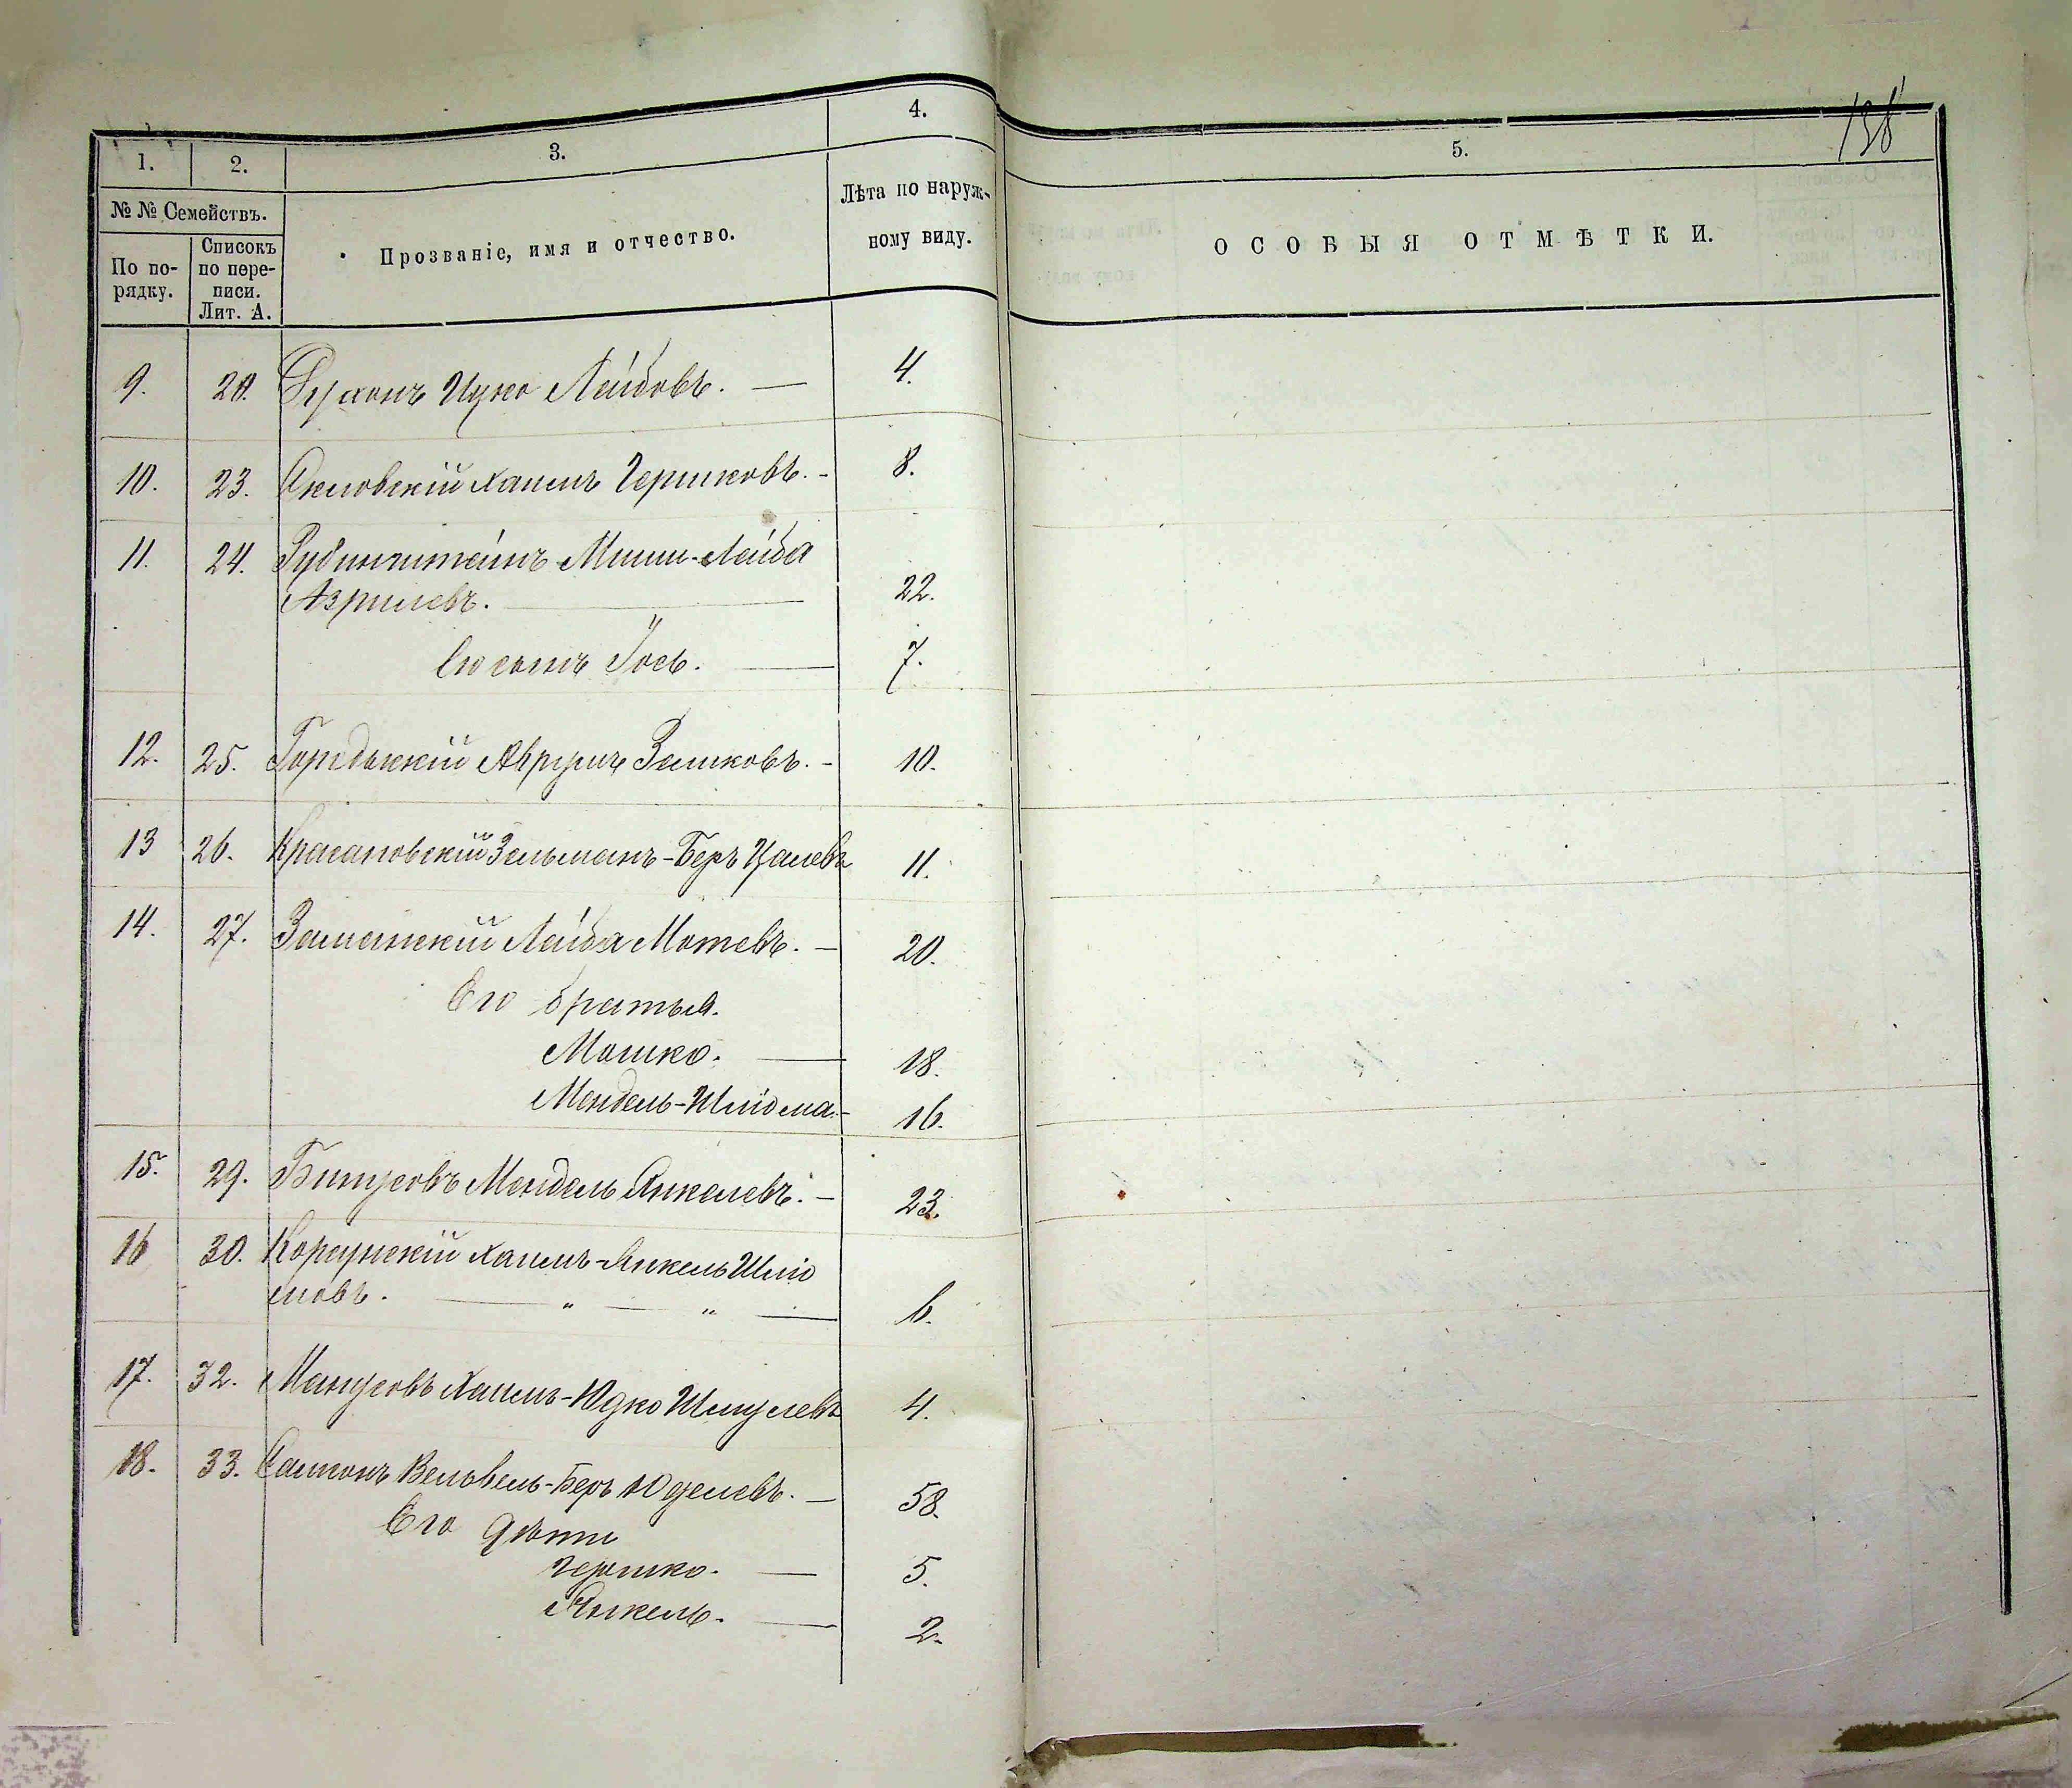 138
1. 2. 3. 4. 5.
№ № Семействъ.
По по-
рядку.
Списокъ
по пере-
писи.
Лит. А.
Прозваніе, имя и отчество.
Лѣта по наруж-
ному виду.
ОСОБЫЯ ОТМѢТКИ.
9. 20. Ицко Лейбовъ. — 4.
10. 23. Хаимъ Гершковъ. - 8.
11. 24. Рубинштейнъ Лейба
Азрилевъ. — 22.
Его сынъ Іось. — 7.
12. 25. Аврумъ Зельковъ. - 10.
13 26. Красановскій Зельманъ-Беръ Цалевъ 11.
14. 27. Заманскій Лейба Мотевъ. — 20.
Его братья.
Мошко. — 18.
Мендель-Шліома. - 16.
15. 29. Бинусовъ Мендель Янкелевъ. — 23.
16 30. Корсунскій Хаимъ-Янкель Шліо
мовъ. — „ — „ — 6.
17. 32. Манусовъ Хаимъ-Юдко Шмулевъ 4.
18. 33. Вельвель-Беръ Юделевъ. — 58.
Его дѣти
Гершко. — 5.
Янкель. — 2.